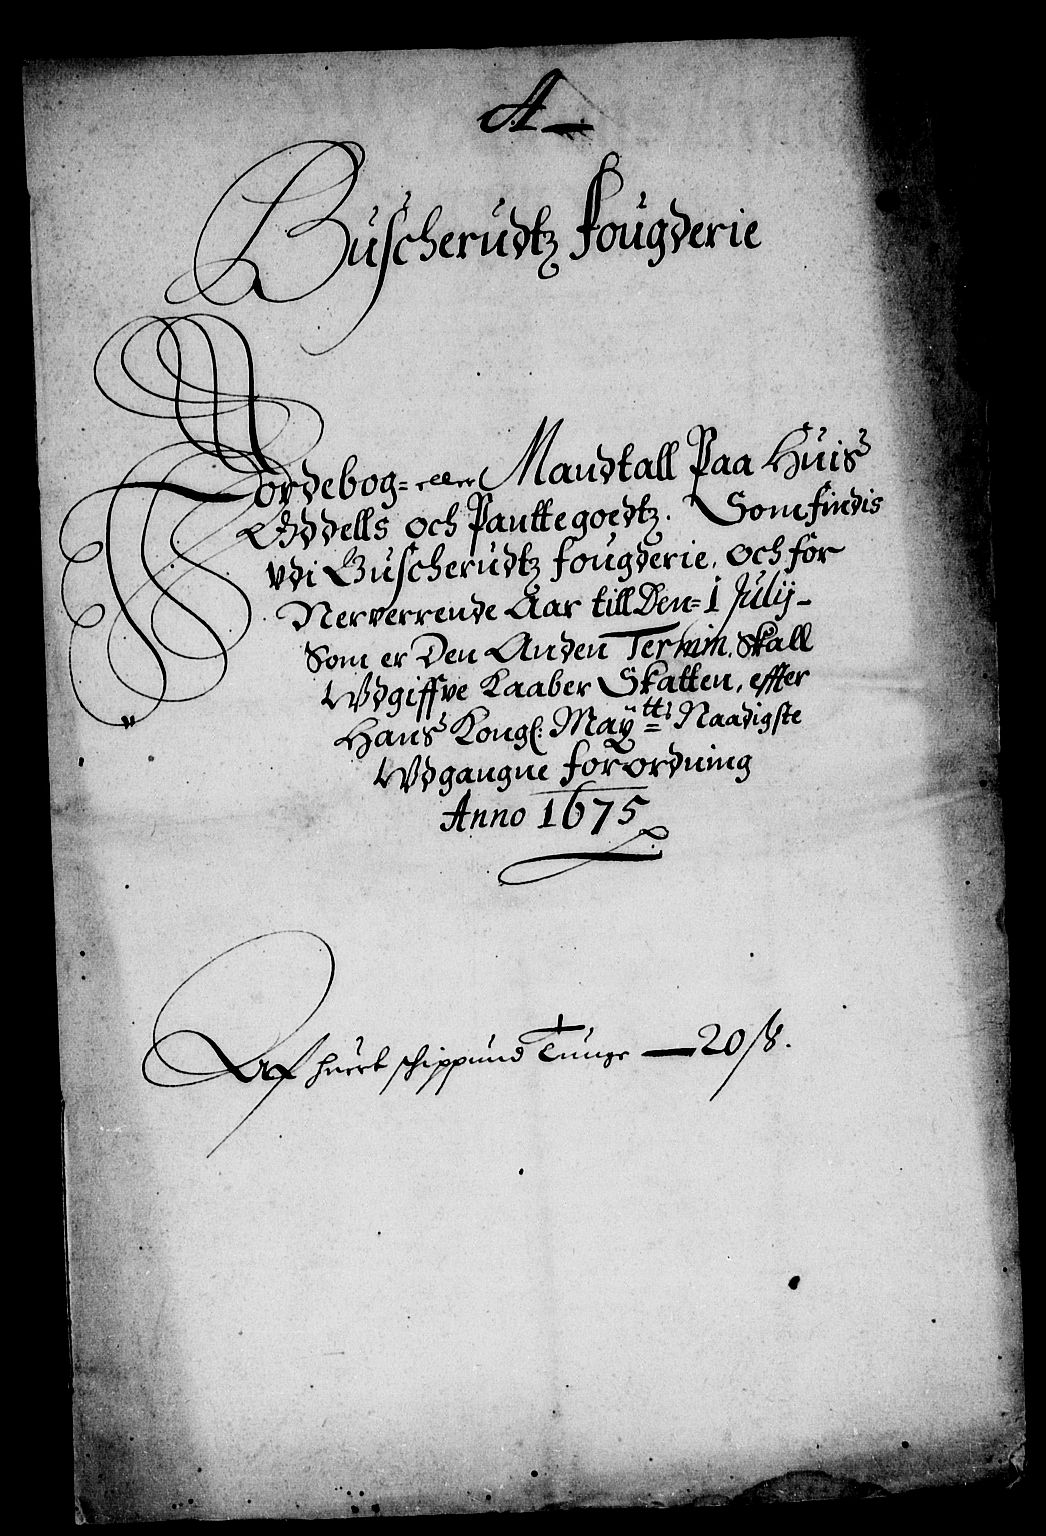 A
Buscherudtz fougderie
Jordebog= eller Mandtall Paa Huis
Oddells och Panttegoedtz. Som findis
Vdi Buscherudtz fougderie, och for
Nerverrende Aar till Den= 1 Julij-
Som er Den Anden Termin. Skall
Vdgiffve Kaaber Skatten, effter
Hans Kongl: Maytts Naadigste
Vdgangne forordning
Anno 1675
Af huert schippund Tunge — 20 ß.